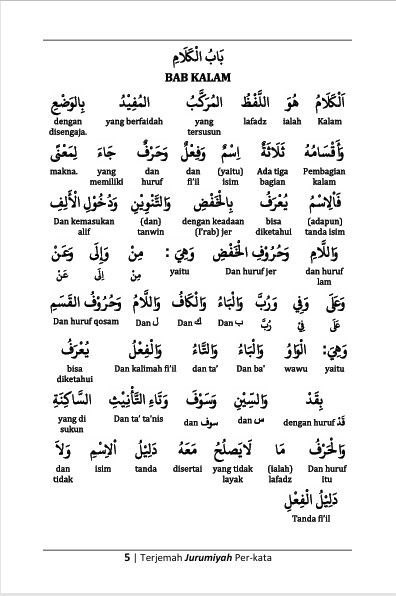 بَابُ الْكَلَامِ
BAB KALAM
اَلْكَلَامُ هُوَ اللَّفْظُ المُرَكَّبُ المُفِيْدُ بِالوَضْعِ
dengan yang berfaidah yang lafadz ialah Kalam
disengaja. tersusun
وَأَقْسَامُهُ ثَلَاثَةٌ اِسْمٌ وَفِعْلٌ وَحَرْفٌ جَاءَ لِمَعْنًى
makna. yang dan dan (yaitu) Ada tiga Pembagian
memiliki huruf fi'il isim bagian kalam
فَالْاِسْمُ يُعْرَفُ بِالْخَفْضِ وَالتَّنْوِيْنِ وَدُخُوْلِ الْأَلِفِ
Dan kemasukan (dan) dengan keadaan bisa (adapun)
alif tanwin (I'rab) jer diketahui tanda isim
وَاللَّامِ وَحُرُوْفِ الْخَفْضِ وَهِيَ : مِنْ وَإِلَى وَعَنْ
عَنْ إِلَى مِنْ yaitu Dan huruf jer dan huruf
lam
وَعَلَى وَفِي وَرُبَّ وَالْبَاءُ وَالْكَافُ وَاللَّامُ وَحُرُوْفُ القَسَمِ
Dan huruf qosam Dan ل Dan ك Dan ب رُبَّ فِيْ عَلَى
وَهِيَ: الْوَاوُ وَالْبَاءُ وَالتَّاءُ وَالْفِعْلُ يُعْرَفُ
bisa Dan kalimah fi'il dan ta' Dan ba' wawu yaitu
diketahui
بِقَدْ وَالسِّيْنِ وَسَوْفَ وَتَاءِ التَّأْنِيْثِ السَّاكِنَةِ
yang di Dan ta' ta'nis dan سوف dan س dengan huruf قَدْ
sukun
وَالْحَرْفُ مَا لَايَصلُحُ مَعَهُ دَلِيْلُ الْاِسْمِ وَلَا
dan isim tanda disertai yang tidak (ialah) Dan huruf
tidak layak lafadz itu
دَلِيْلُ الْفِعْلِ
Tanda fi'il
5 | Terjemah Jurumiyah Per-kata